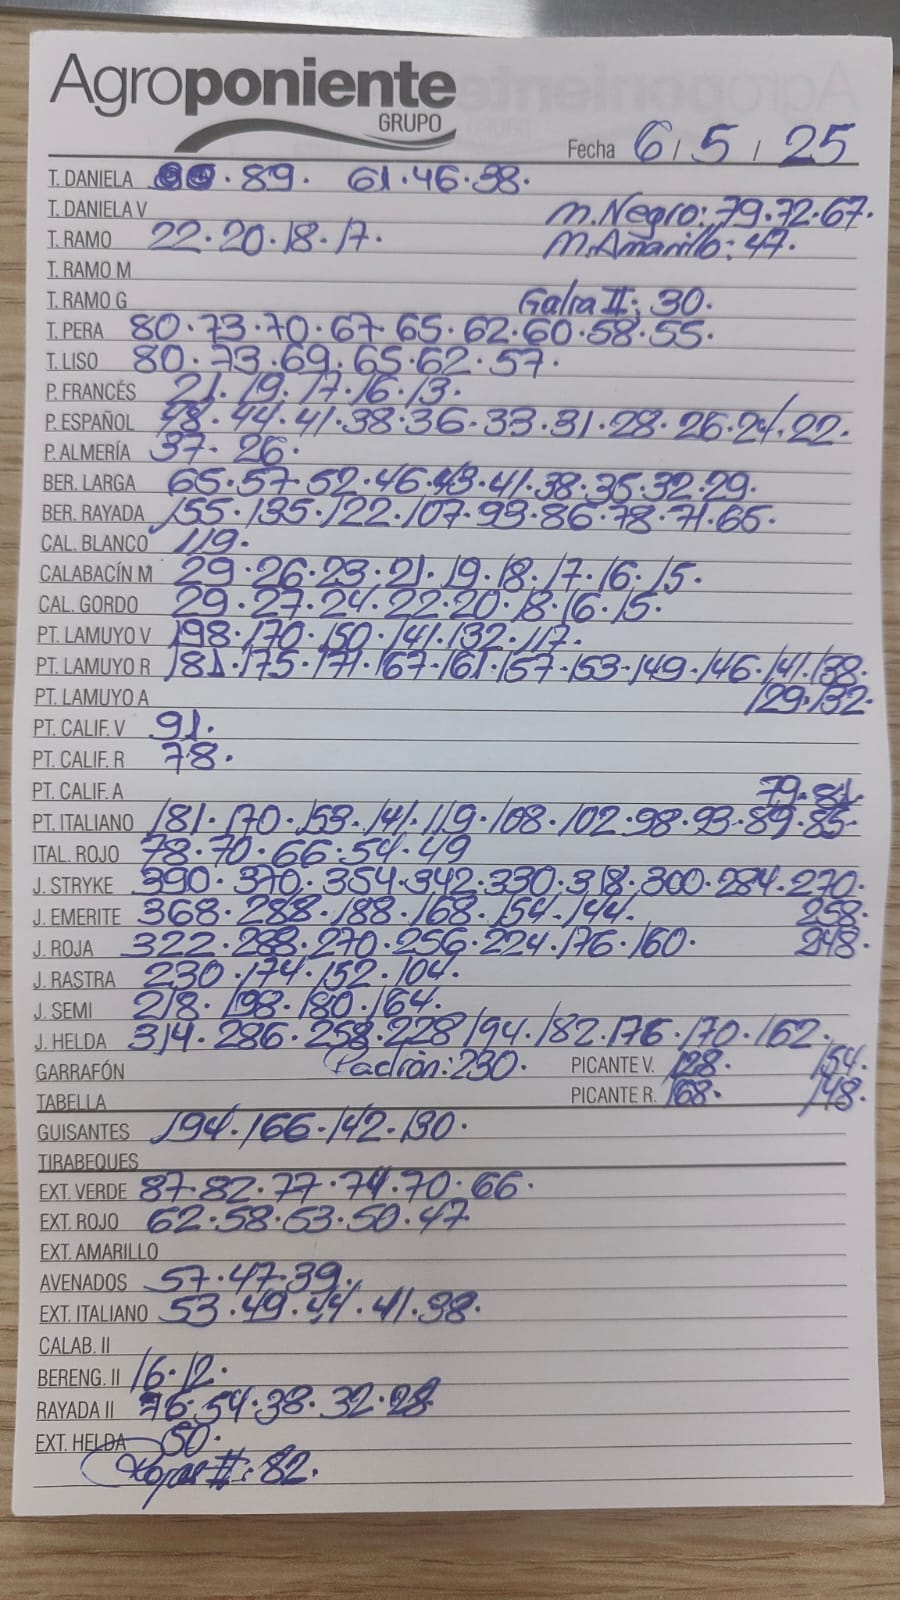 Agroponiente
GRUPO
Fecha 6 / 5 / 25
T. DANIELA 89. 61.46.38.
T. DANIELA V M.Negro: 79.72.67.
T. RAMO 22.20.18.17. M.Amarillo: 47.
T. RAMO M
T. RAMO G Galia II: 30.
T. PERA 80.73.70.67.65.62.60.58.55.
T. LISO 80.73.69.65.62.57.
P. FRANCÉS 21.19.17.16.13.
P. ESPAÑOL 48.44.41.38.36.33.31.28.26.24.22.
P. ALMERÍA 37.26.
BER. LARGA 65.57.52.46.43.41.38.35.32.29.
BER. RAYADA 155.135.122.107.93.86.78.71.65.
CAL. BLANCO 119.
CALABACÍN M 29.26.23.21.19.18.17.16.15.
CAL. GORDO 29.27.24.22.20.18.16.15.
PT. LAMUYO V 198.170.150.141.132.117.
PT. LAMUYO R 181.175.171.167.161.157.153.149.146.141.138.
PT. LAMUYO A 129.132.
PT. CALIF. V 91.
PT. CALIF. R 78.
PT. CALIF. A 79.81.
PT. ITALIANO 181.170.153.141.119.108.102.98.93.89.85.
ITAL. ROJO 78.70.66.54.49
J. STRYKE 390.370.354.342.330.318.300.284.270.
J. EMERITE 368.288.188.168.154.144. 258.
J. ROJA 322.288.270.256.224.176.160. 248.
J. RASTRA 230.174.152.104.
J. SEMI 218.198.180.164.
J. HELDA 314.286.258.228.194.182.176.170.162.
GARRAFÓN Padrón: 230. PICANTE V. 128. 154.
TABELLA PICANTE R. 168. 148.
GUISANTES 194.166.142.130.
TIRABEQUES
EXT. VERDE 87.82.77.74.70.66.
EXT. ROJO 62.58.53.50.47
EXT. AMARILLO
AVENADOS 57.47.39.
EXT. ITALIANO 53.49.44.41.38.
CALAB. II
BERENG. II 16.12.
RAYADA II 76.54.38.32.28
EXT. HELDA 50.
Rojas II: 82.